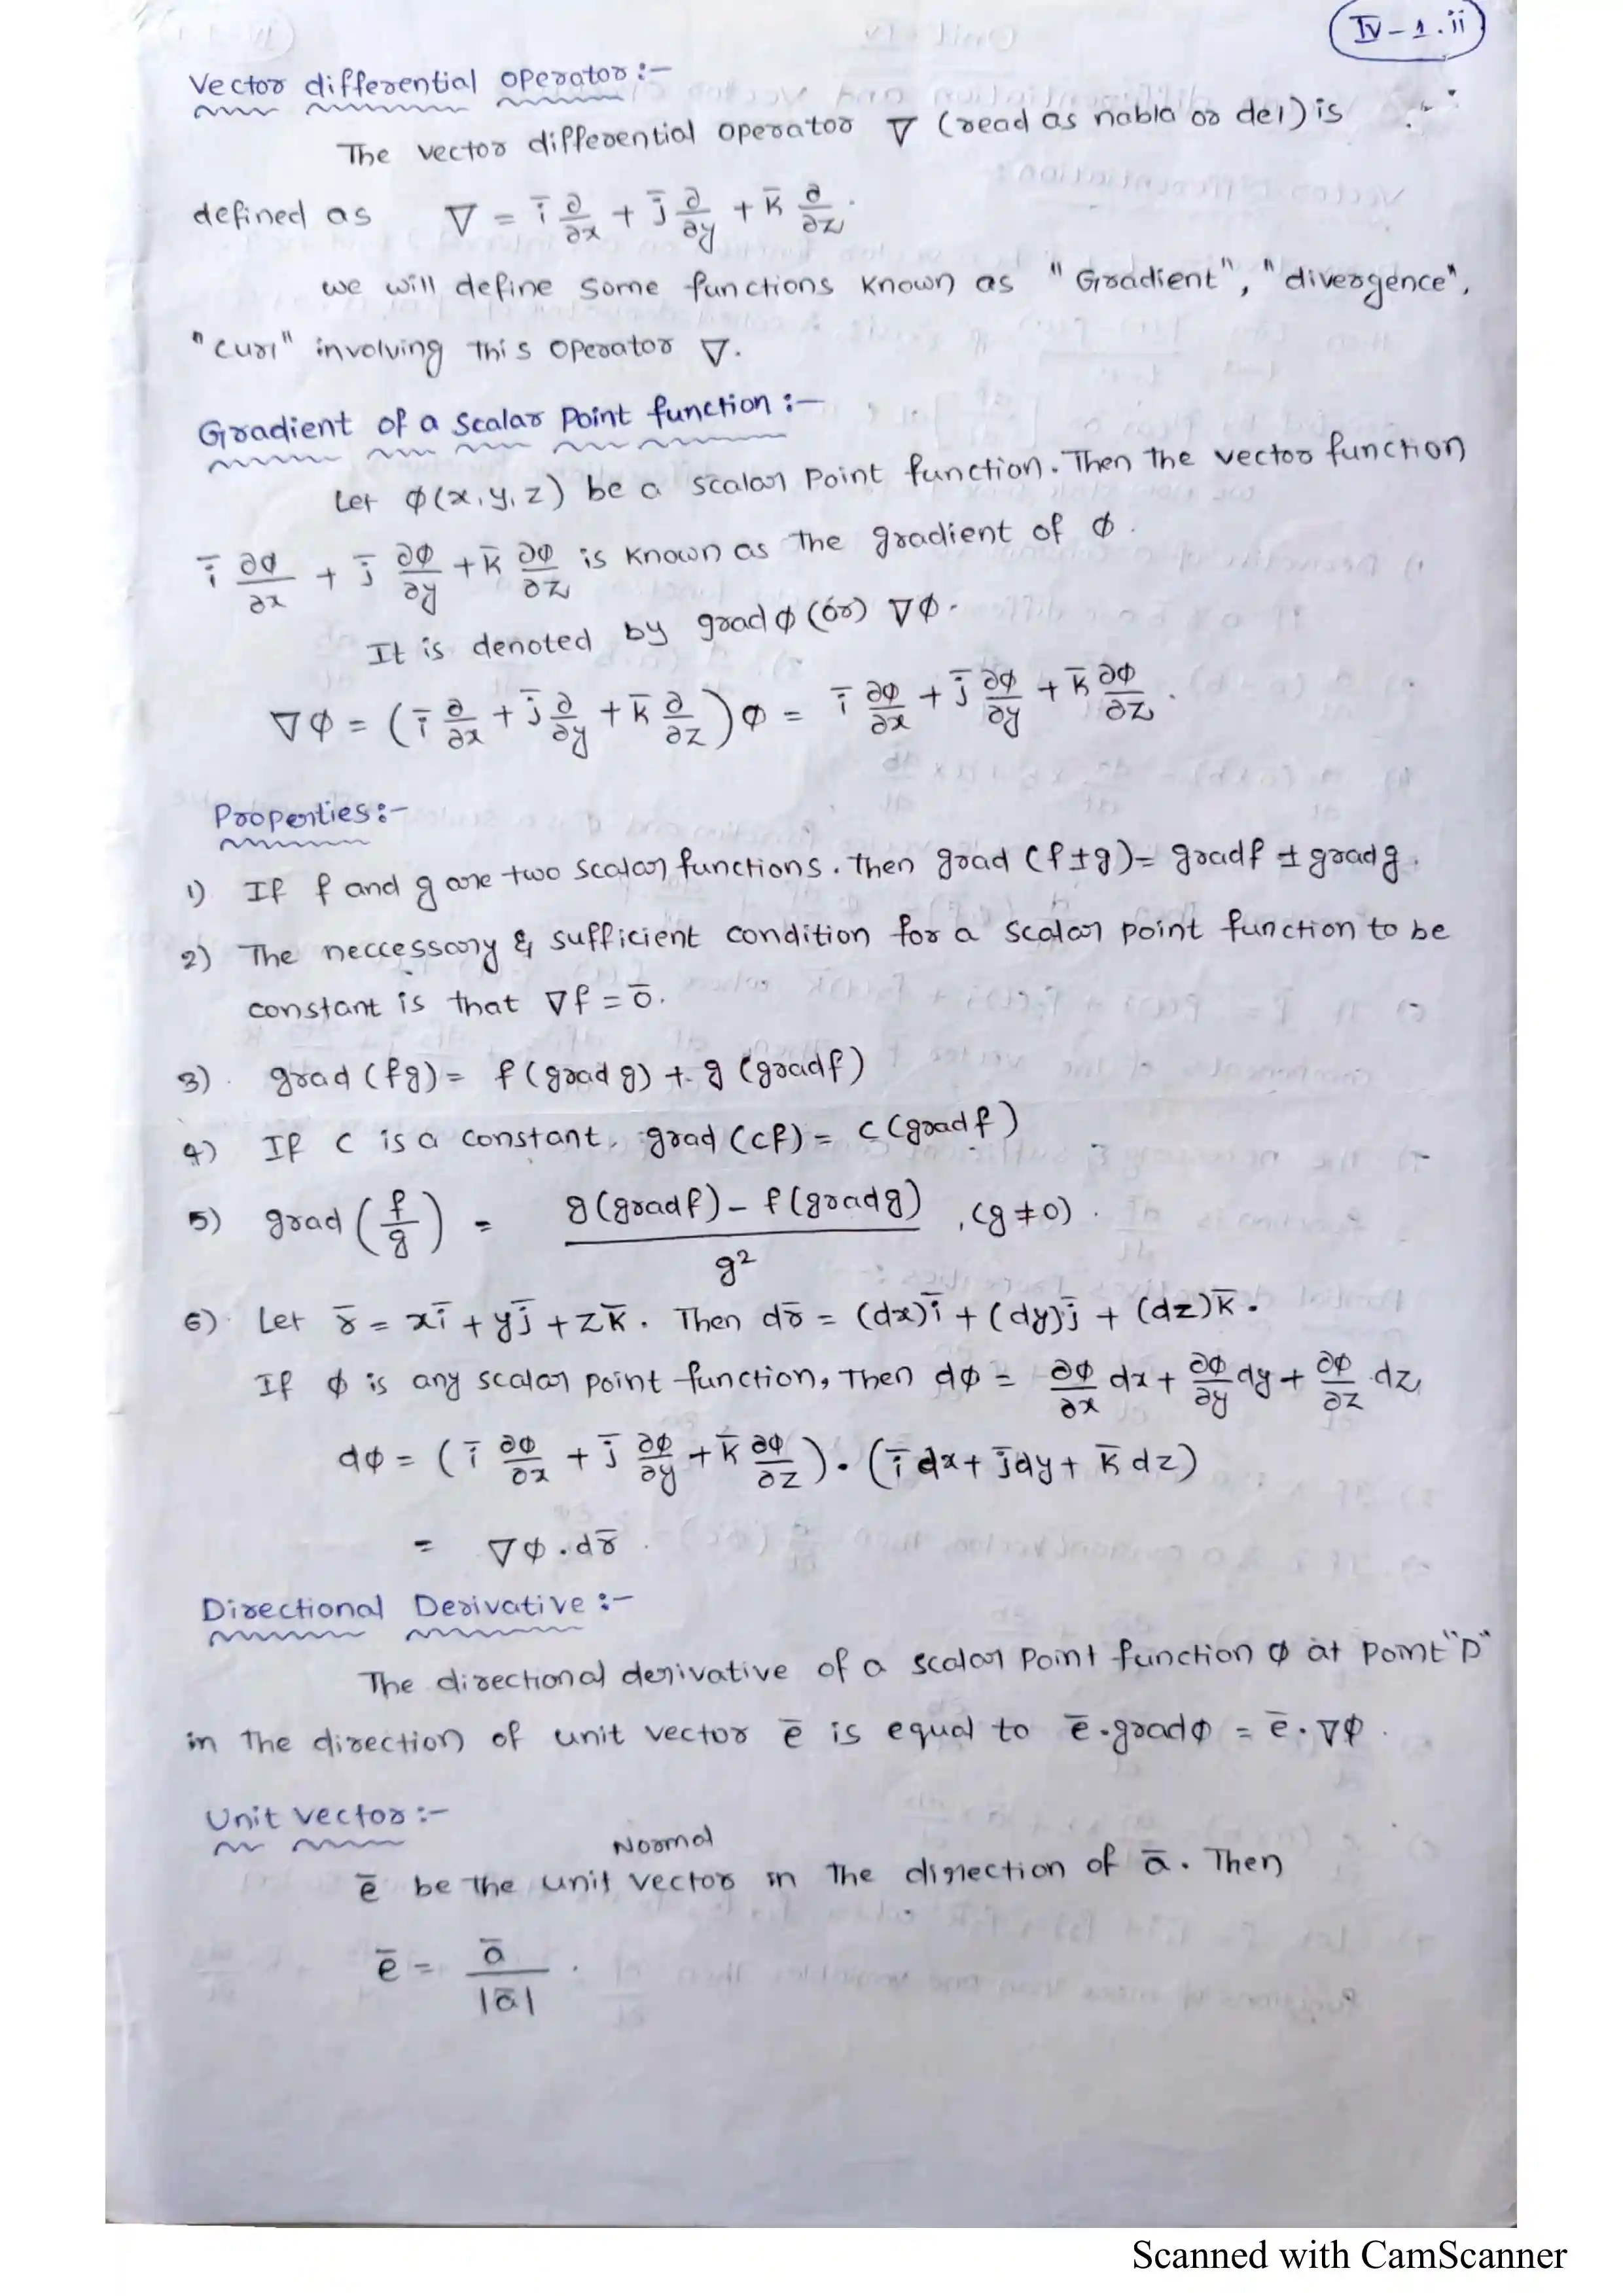 IV-1.ii
Vector differential operator:-
The vector differential operator ∇ (read as nabla or del) is
defined as ∇ = i̅ ∂/∂x + j̅ ∂/∂y + k̅ ∂/∂z.
we will define some functions known as "Gradient", "divergence",
"curl" involving this operator ∇.
Gradient of a scalar point function:-
Let φ(x,y,z) be a scalar point function. Then the vector function
i̅ ∂φ/∂x + j̅ ∂φ/∂y + k̅ ∂φ/∂z is known as the gradient of φ.
It is denoted by grad φ (or) ∇φ.
∇φ = (i̅ ∂/∂x + j̅ ∂/∂y + k̅ ∂/∂z)φ = i̅ ∂φ/∂x + j̅ ∂φ/∂y + k̅ ∂φ/∂z.
Properties:-
1) If f and g are two scalar functions. Then grad (f±g) = gradf ± gradg.
2) The neccessary & sufficient condition for a scalar point function to be
constant is that ∇f = o̅.
3). grad (fg) = f (grad g) + g (gradf)
4) If c is a constant, grad (cf) = c (gradf)
5) grad (f/g) = g(gradf) - f(gradg) / g² , (g≠0).
6). Let r̅ = xi̅ + yj̅ + zk̅. Then dr̅ = (dx)i̅ + (dy)j̅ + (dz)k̅.
If φ is any scalar point function, Then dφ = ∂φ/∂x dx + ∂φ/∂y dy + ∂φ/∂z dz
dφ = (i̅ ∂φ/∂x + j̅ ∂φ/∂y + k̅ ∂φ/∂z) . (i̅ dx + j̅ dy + k̅ dz)
= ∇φ . dr̅
Directional Derivative:-
The directional derivative of a scalar point function φ at point "P"
in the direction of unit vector e̅ is equal to e̅ . gradφ = e̅ . ∇φ.
Unit vector:-
Normal
e̅ be the unit vector in the direction of a̅. Then
e̅ = a̅ / |a̅| .
Scanned with CamScanner